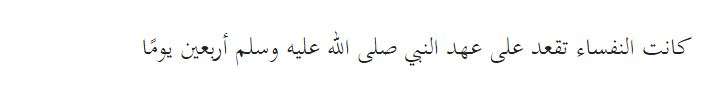 كانت النفساء تقعد على عهد النبي صلى الله عليه وسلم أربعين يومًا